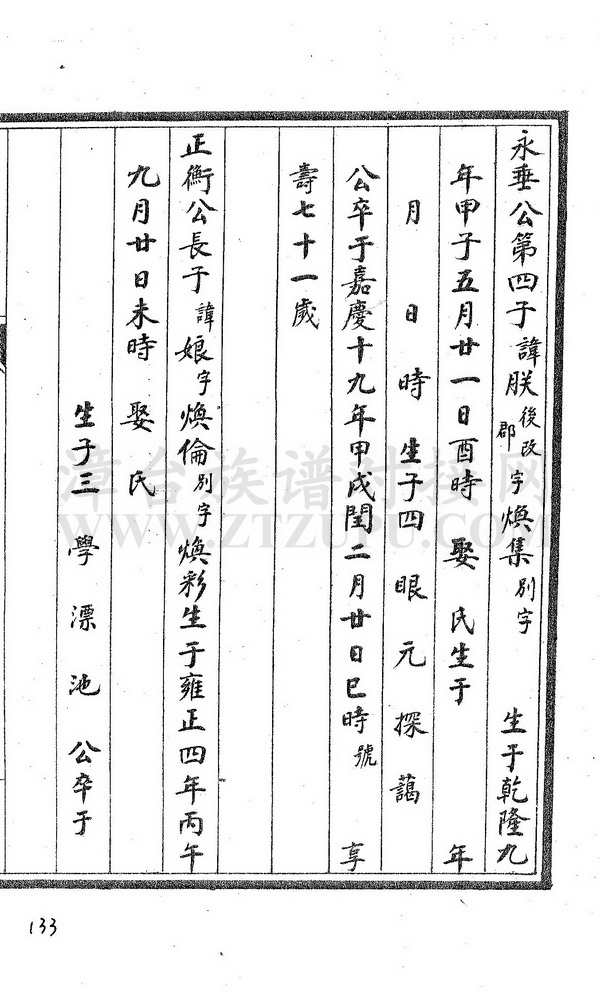 永垂公第四子諱朕後改郡字煥集別字 生于乾隆九
年甲子五月廿一日酉時 娶 氏生于 年
月 日 時 生子四 眼 元 探 藹
公卒于嘉慶十九年甲戌閏二月廿日巳時號 享
壽七十一歲
正衡公長子諱娘字煥倫別字煥彩生于雍正四年丙午
九月廿日未時 娶 氏
生子三 學 漂 池 公卒于
漳台族谱对接网
WWW.ZTZUPU.COM
133